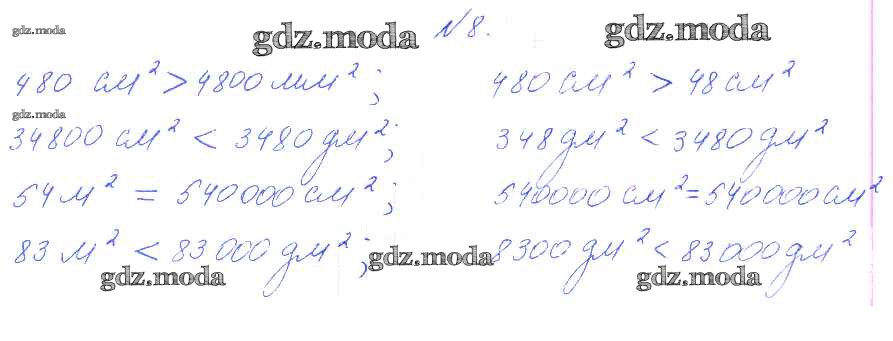 gdz.moda
gdz.moda №8. gdz.moda
480 см² > 4800 мм²; 480 см² > 48 см²
gdz.moda
34800 см² < 3480 дм²; 348 дм² < 3480 дм²
54 м² = 540000 см²; 540000 см² = 540000 см²
83 м² < 83000 дм²; 8300 дм² < 83000 дм²
gdz.moda gdz.moda gdz.moda